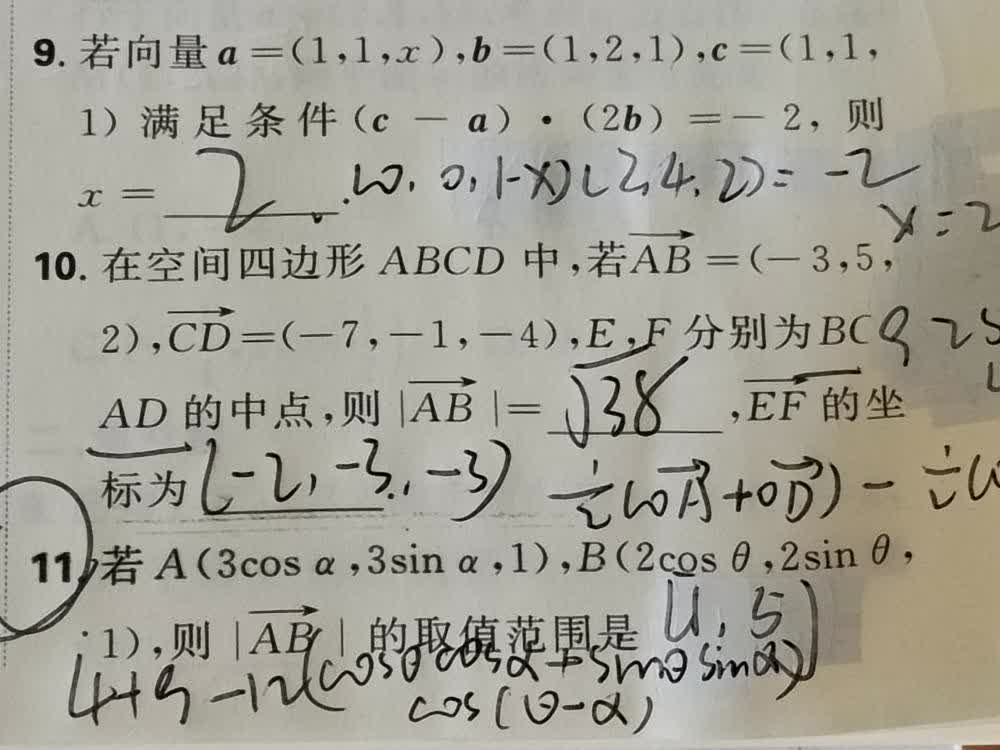 9. 若向量 a=(1,1,x),b=(1,2,1),c=(1,1,
1) 满足条件 (c - a)·(2b) =- 2, 则
x = 2 . (0, 0, 1-x)(2,4,2)= -2
x=2
10. 在空间四边形 ABCD 中,若AB=(-3,5,
2),CD=(-7,-1,-4),E,F 分别为BC 9 25
AD 的中点,则 |AB|= √38 ,EF 的坐
标为 (-2, -3, -3) ½(OA+OD) - ½(
11. 若 A(3cos α,3sin α,1),B(2cos θ,2sin θ,
1),则 |AB| 的取值范围是 [1, 5]
4+9-12(cosθcosα+sinθsinα)
cos(θ-α)